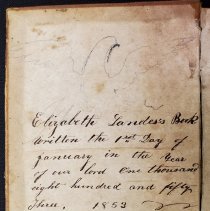 Elizabeth Landers Book
Written the 1st Day of
January in the Year
of our lord One thousand
eight hundred and fifty
three, 1853